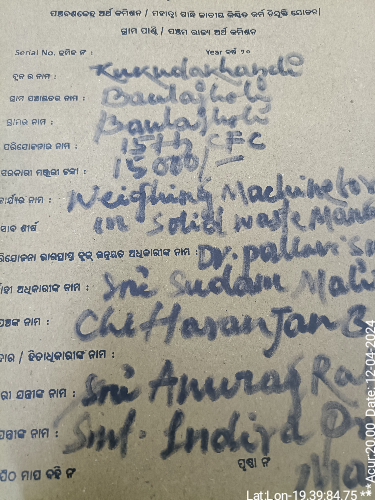 ପଞ୍ଚଦଶକେନ୍ଦ୍ର ଅର୍ଥ କମିଶନ / ମହାତ୍ମା ଗାନ୍ଧି ଜାତୀୟ ନିଶ୍ଚିତ କର୍ମ ନିଯୁକ୍ତି ଯୋଜନା
ଗ୍ରାମ ପାଣ୍ଠି / ପଞ୍ଚମ ରାଜ୍ୟ ଅର୍ଥ କମିଶନ
Serial No. କ୍ରମିକ ନଂ : Year ବର୍ଷ ୨୦
ବ୍ଲକ ର ନାମ : Kukudakhandi
ଗ୍ରାମ ପଞ୍ଚାୟତର ନାମ : Baulajholi
ଗ୍ରାମର ନାମ : Baulajholi
ପରିଯୋଜନାର ନାମ : 15th CFC
ସରକାରୀ ମଞ୍ଜୁରୀ ଟଙ୍କା : 15000/-
କାର୍ଯ୍ୟର ନାମ : Weighing Machine for
in Solid waste Mana
ଭାରପ୍ରାପ୍ତ ବ୍ଲକ୍ ଅଧିକାରୀଙ୍କ ନାମ : Dr. pallavi
ଅଧିକାରୀଙ୍କ ନାମ : Sri Sudam
ନାମ : Chittaranjan B
/ ହିତାଧିକାରୀଙ୍କ ନାମ :
ଯନ୍ତ୍ରୀଙ୍କ ନାମ : Sri Anurag Ra
ଯନ୍ତ୍ରୀଙ୍କ ନାମ : Smt. Indira
ମାପ ବହି ନଂ ପୃଷ୍ଠା ନଂ
Lat:Lon-19.39:84.75 **
Acur:20.00 Date: 12-04-2024